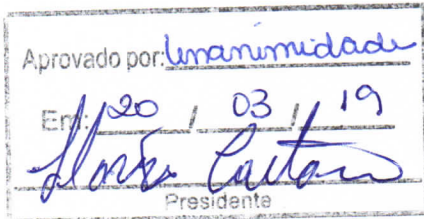 Aprovado por: Unanimidade
Em: 20 / 03 / 19
Caetano
Presidente